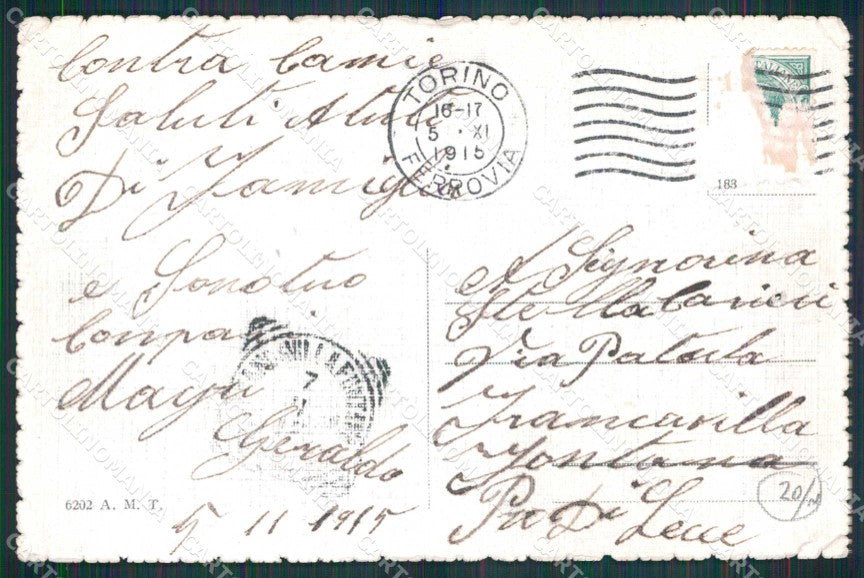 Contra Camie
Saluti A tuti
Di Famiglia
e Sono tuo
Compare
Mayu
Geraldo
5 11 1915
6202 A. M. T.
TORINO
16-17
5 XI
1915
FERROVIA
183
A Signorina
Stella
Via Patula
Francavilla
Fontana
Pro Di Lecce
20/
7
CARTOLINOMANIA